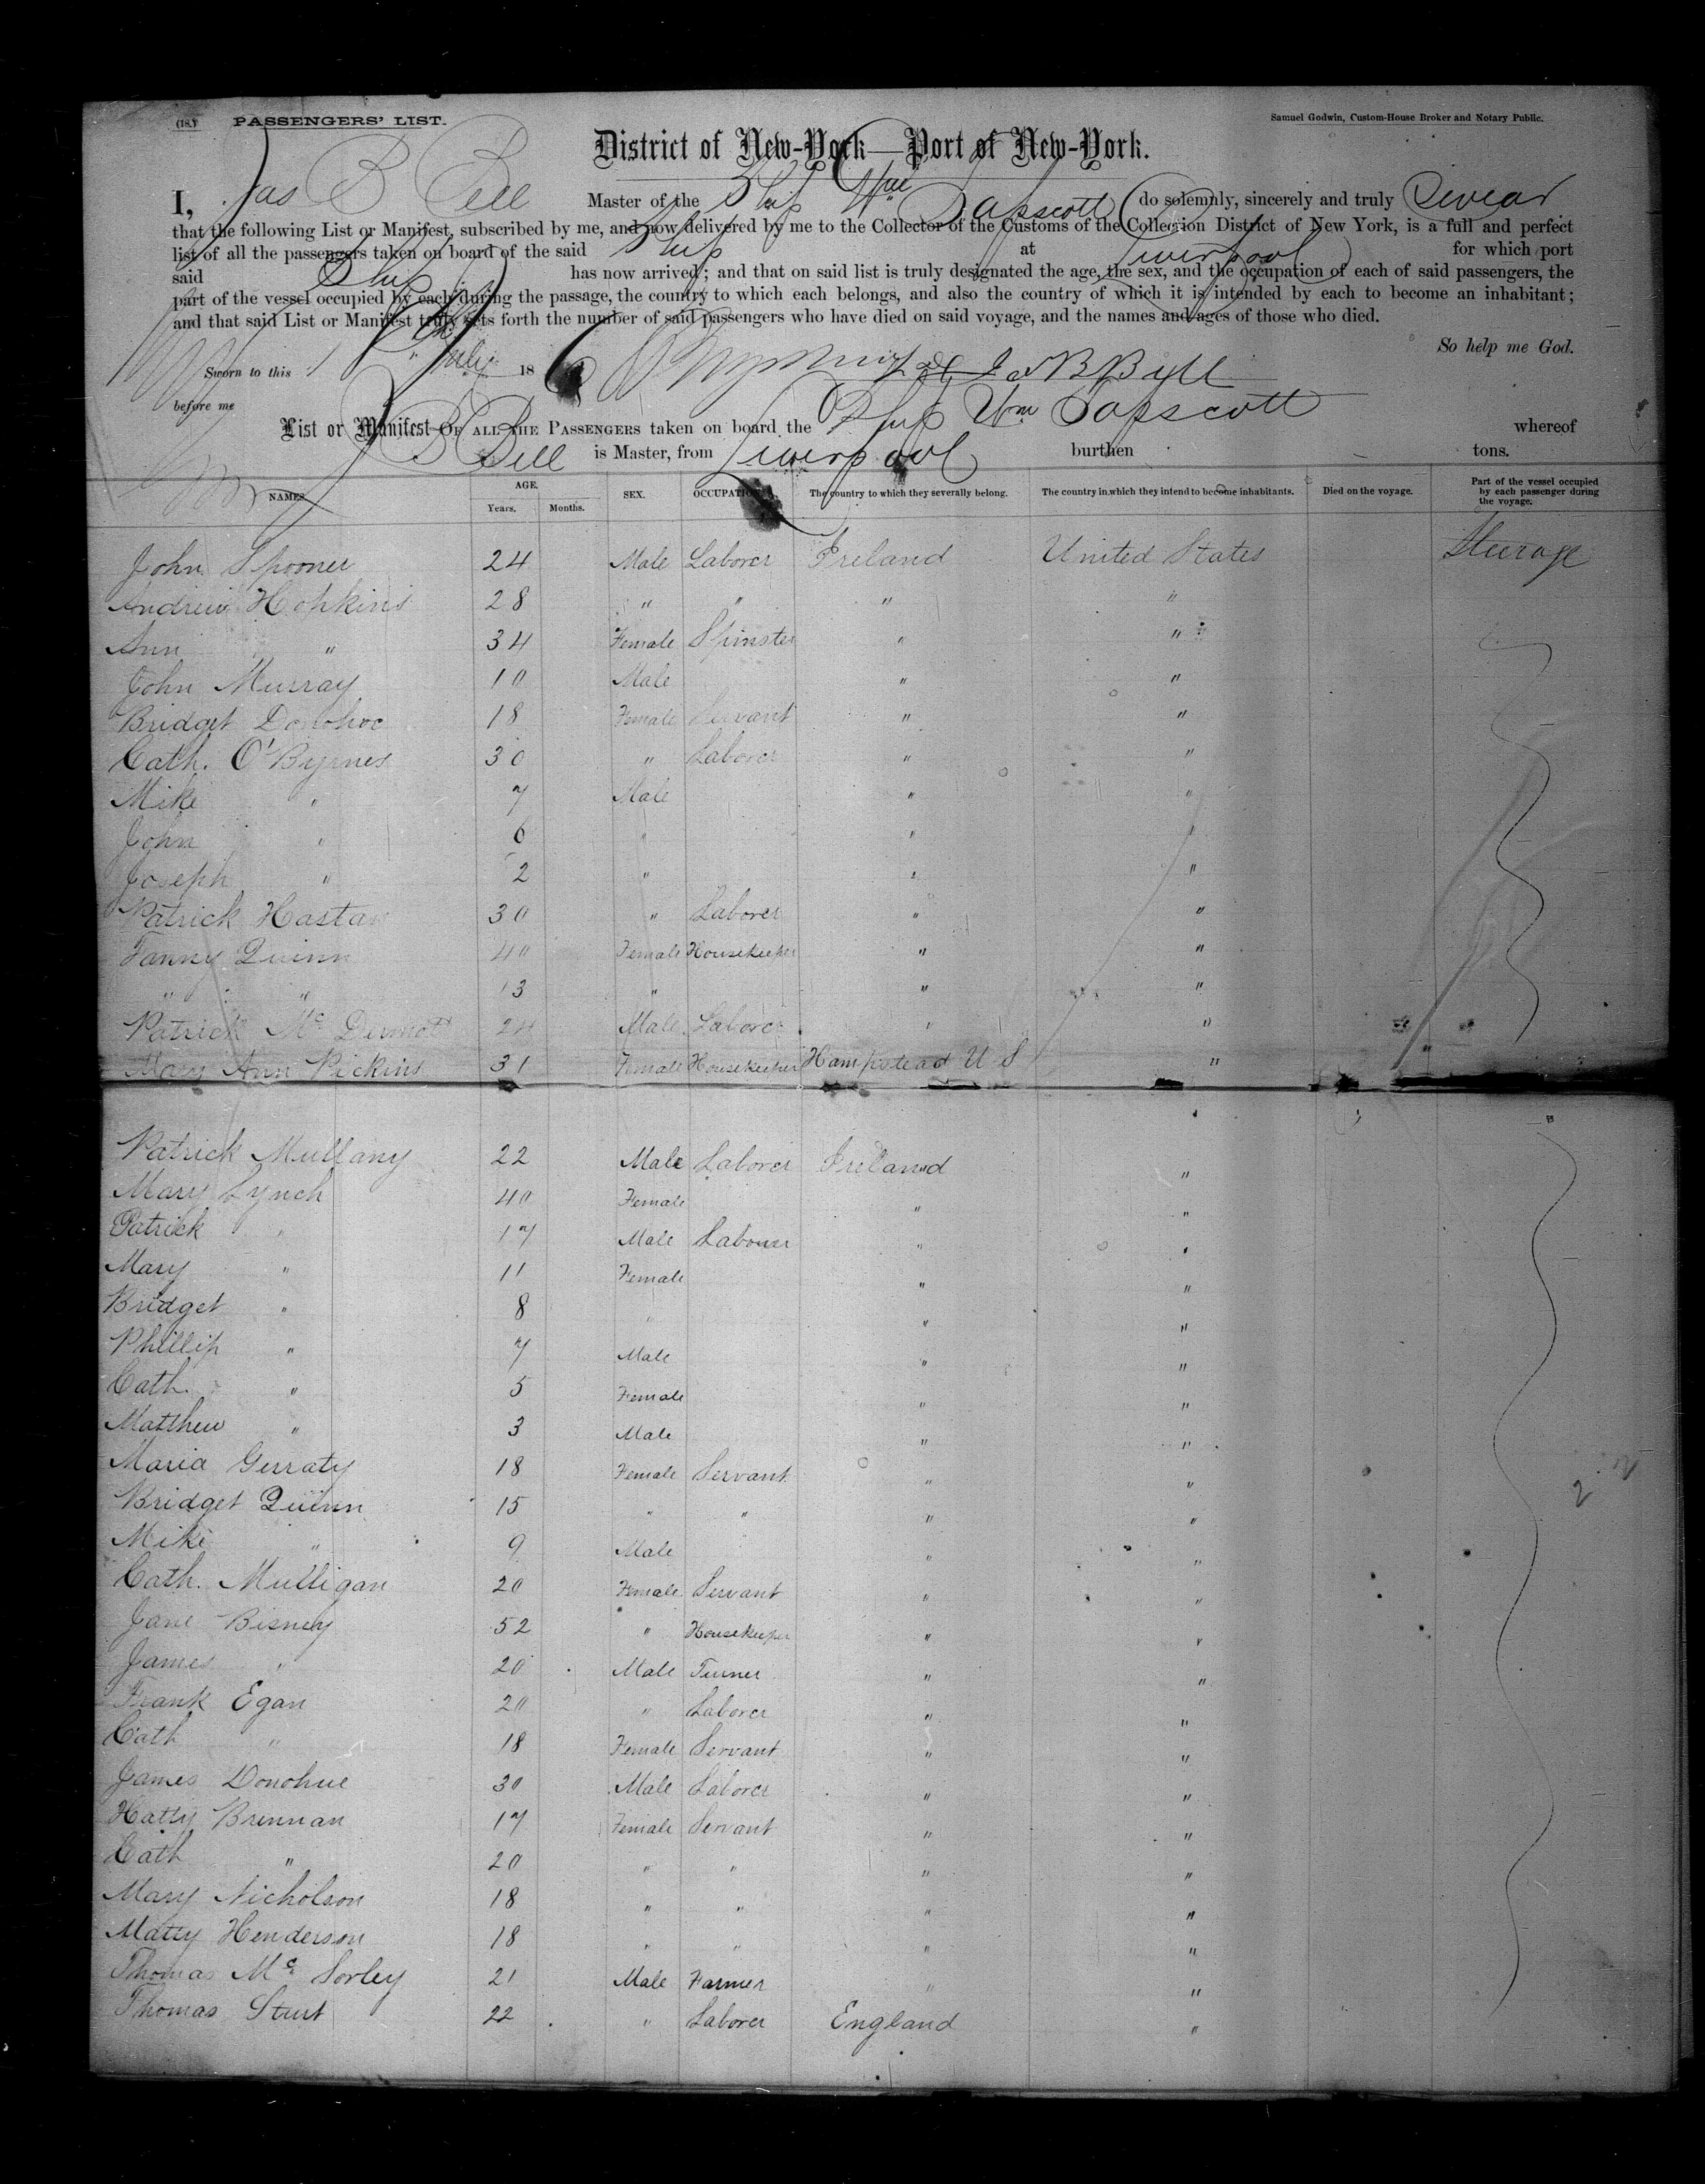 (18.) PASSENGERS' LIST. Samuel Godwin, Custom-House Broker and Notary Public.
District of New-York—Port of New-York.
I, Jas B Bell Master of the Ship Wm Tapscott do solemnly, sincerely and truly Swear
that the following List or Manifest, subscribed by me, and now delivered by me to the Collector of the Customs of the Collection District of New York, is a full and perfect
list of all the passengers taken on board of the said Ship at Liverpool for which port
said Ship has now arrived; and that on said list is truly designated the age, the sex, and the occupation of each of said passengers, the
part of the vessel occupied by each during the passage, the country to which each belongs, and also the country of which it is intended by each to become an inhabitant;
and that said List or Manifest truly sets forth the number of said passengers who have died on said voyage, and the names and ages of those who died.
So help me God.
Sworn to this July 186 Jas B Bell
before me
List or Manifest OF ALL THE PASSENGERS taken on board the Ship Wm Tapscott whereof
B Bell is Master, from Liverpool burthen tons.
NAMES AGE. Years. Months. SEX. OCCUPATION. The country to which they severally belong. The country in which they intend to become inhabitants. Died on the voyage. Part of the vessel occupied by each passenger during the voyage.
John Spooner 24 Male Laborer Ireland United States Steerage
Andrew Hopkins 28 " " " "
Ann " 34 Female Spinster " "
John Murray 10 Male " "
Bridget Donohoe 18 Female Servant " "
Cath. O'Byrnes 30 " Laborer " "
Mike " 7 Male " "
John " 6 " " "
Joseph " 2 " " "
Patrick Hastan 30 " Laborer " "
Fanny Quinn 40 Female Housekeeper " "
" " 13 " " "
Patrick Mc Dermott 24 Male Laborer " "
Mary Ann Pickins 31 Female Housekeeper Hampstead U S "
Patrick Mullany 22 Male Laborer Ireland "
Mary Lynch 40 Female " "
Patrick " 17 Male Labourer " "
Mary " 11 Female " "
Bridget " 8 " " "
Phillip " 7 Male " "
Cath. " 5 Female " "
Matthew " 3 Male " "
Maria Gerraty 18 Female Servant " "
Bridget Quinn 15 " " " "
Mike " 9 Male " "
Cath. Mulligan 20 Female Servant " "
Jane Bisney 52 " Housekeeper " "
James " 20 Male Turner " "
Frank Egan 20 " Laborer " "
Cath " 18 Female Servant " "
James Donohue 30 Male Laborer " "
Hatty Brennan 17 Female Servant " "
Cath " 20 " " " "
Mary Nicholson 18 " " " "
Matty Henderson 18 " " " "
Thomas Mc Sorley 21 Male Farmer " "
Thomas Sturt 22 " Laborer England "